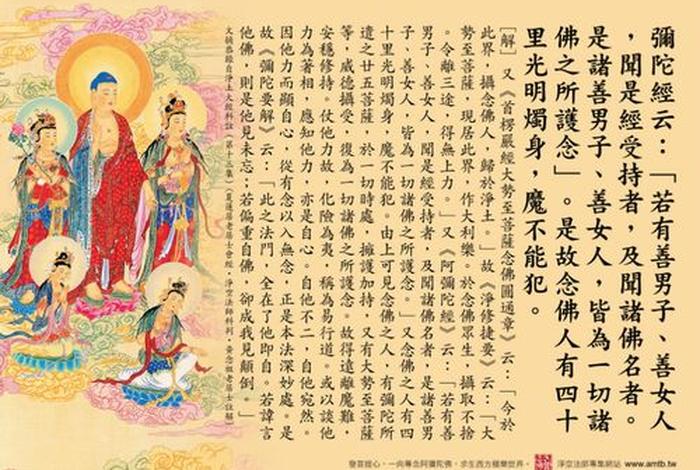 彌陀經云：「若有善男子、善女人
，聞是經受持者，及聞諸佛名者。
是諸善男子、善女人，皆為一切諸
佛之所護念」。是故念佛人有四十
里光明燭身，魔不能犯。
[解]又《首楞嚴經大勢至菩薩念佛圓通章》云：「今於
此界，攝念佛人，歸於淨土。」故《淨修捷要》云：「大
勢至菩薩，現居此界，作大利樂。於念佛眾生，攝取不捨
。令離三途，得無上力。」又《阿彌陀經》云：「若有善
男子、善女人，聞是經受持者，及聞諸佛名者，是諸善男
子、善女人，皆為一切諸佛之所護念。」又念佛之人有四
十里光明燭身，魔不能犯。由上可見念佛之人，有彌陀所
遣之廿五菩薩，於一切時處，擁護加持，又有大勢至菩薩
等，威德攝受，復為一切諸佛之所護念。故得遠離魔難，
安穩修持。仗他力故，化險為夷，稱為易行道。或以談他
力為著相，應知他力，亦是自心。自他不二，自他宛然。
因他力而顯自心，從有念以入無念，正是本法深妙處。是
故《彌陀要解》云：「此之法門，全在了他即自。若諱言
他佛，則是他見未忘；若偏重自佛，卻成我見顛倒。」
文摘恭錄自淨土大經科註（第十三集）（夏蓮居老居士會集，淨空法師科判，黃念祖老居士註解）
發菩提心，一向專念阿彌陀佛，求生西方極樂世界。
淨空法師專集網站 www.amtb.tw